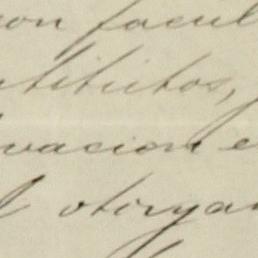 con facul
stitutos,
vacion e
l otorgan